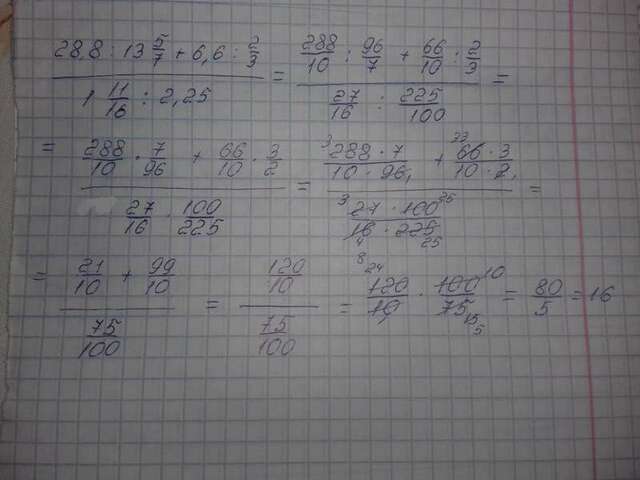 28,8 : 13 5/7 + 6,6 : 2/3 / 1 11/16 : 2,25 = 288/10 : 96/7 + 66/10 : 2/3 / 27/16 : 225/100 =
= 288/10 · 7/96 + 66/10 · 3/2 / 27/16 · 100/225 = 288 · 7/10 · 96 + 66 · 3/10 · 2 / 27 · 100/16 · 225 =
= 21/10 + 99/10 / 75/100 = 120/10 / 75/100 = 120/10 · 100/75 = 80/5 = 16